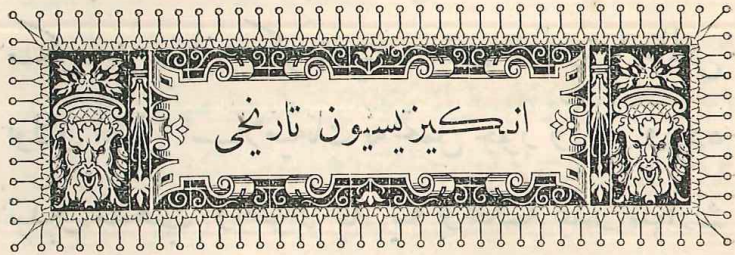 انكيزيسيون تاريخى